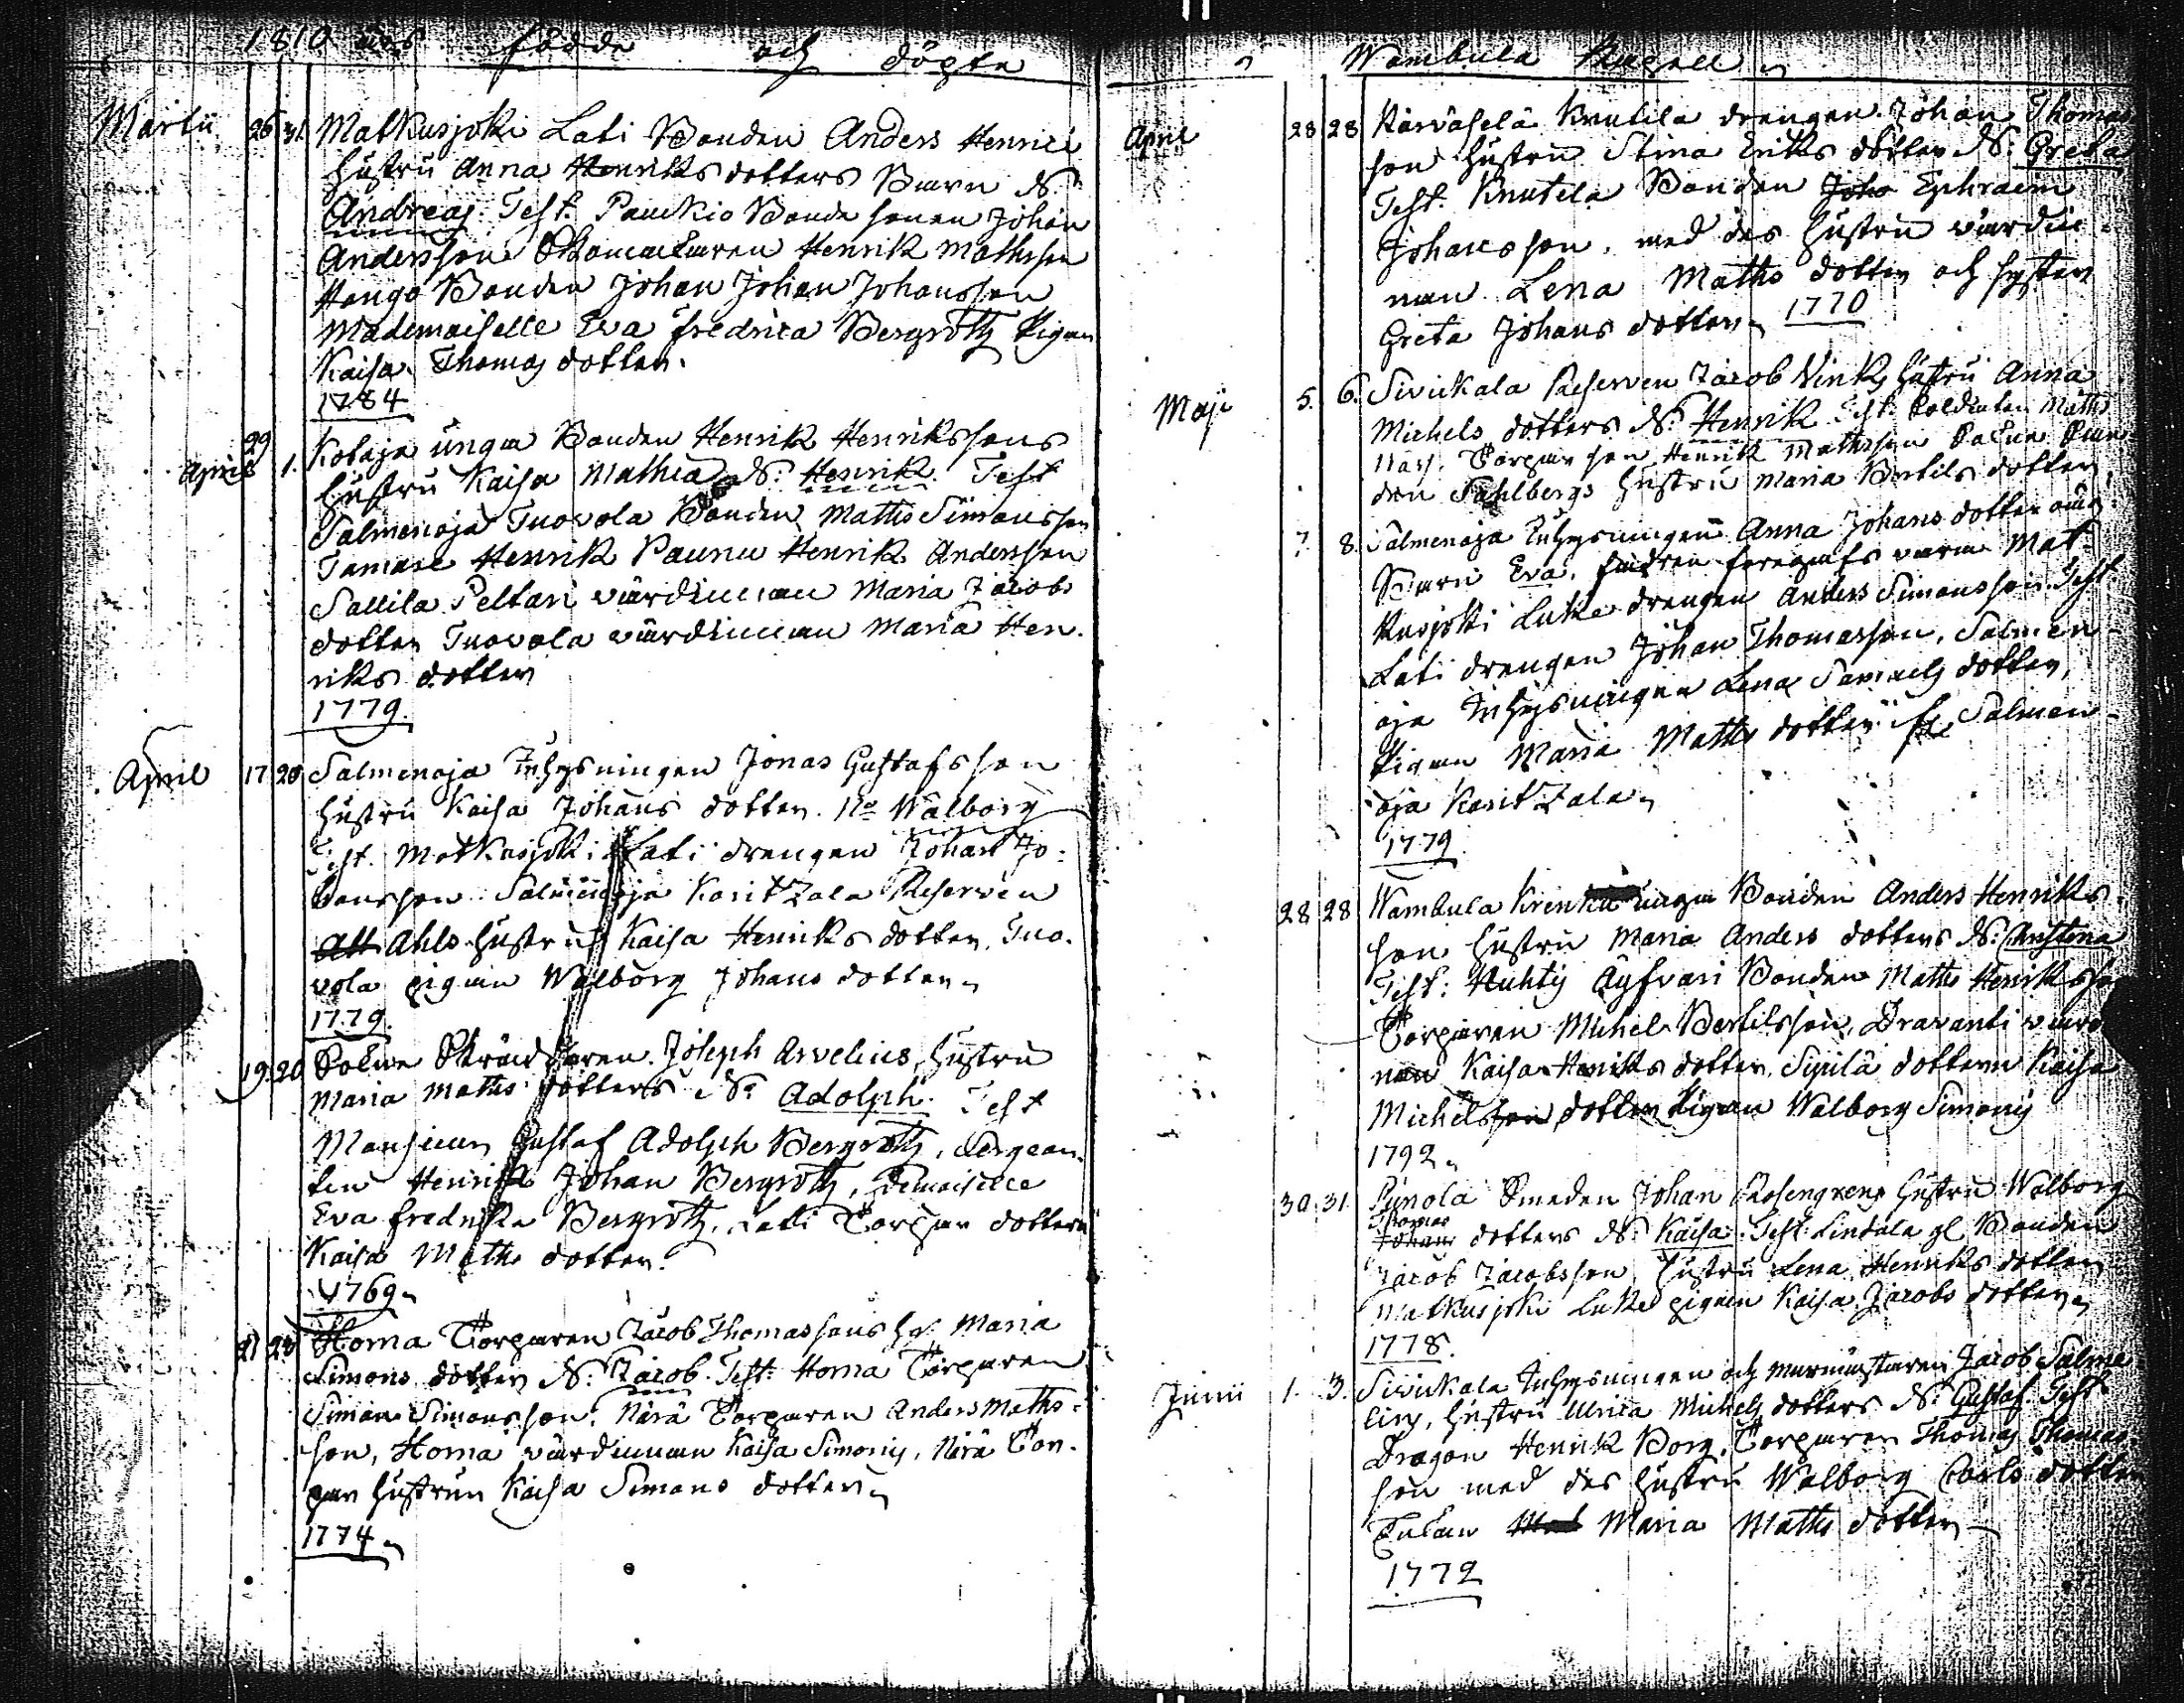 1810 års födde och döpte
Martii 26 31. Matkusjoki Lati Bonden Anders Henrici
hustru Anna Henriks dotters Barn N:
Andreas. Test. Paukio Bonde sonen Johan
Andersson Skomakaren Henrik Mathsson
Hongo Bonden Johan Johan Johansson
Mademoiselle Eva Fredrica Bergroth Pigan
Kaisa Thomas dotter.
1784
29
April 1. Kotaja unga Bonden Henrik Henrikssons
hustru Kaisa Mathiæ N: Henrik. Test
Salmenoja Tuovola Bonden Matts Simonsson
Tamare Henrik Paunu Henrik Andersson
Sallila Peltari värdinnan Maria Jacobs
dotter Tuovola värdinnan Maria Hen-
riks dotter
1779.
April 17 20 Salmenoja Inhysningen Jonas Gustafsson
hustru Kaisa Johans dotter. No Walborg
Test. Matkusjoki Lati drengen Johan Jo-
hansson Salmenoja Karitzala Reserven
Alt Ahls hustru Kaisa Henriks dotter, Tuo-
vola pigan Walborg Johans dotter
1779.
19. 20 Skräddaren Joseph Arvelius, hustru
Maria Maths dotters N: Adolph. Test
Monsieur Gustaf Adolph Bergroth, Sergean-
ten Henrik Johan Bergroth, Demoiselle
Eva Fredrika Bergroth, Latti Torpar dottern
Kaisa Maths dotter.
1769
21 23 Homa Torparen Jacob Thomassons h. Maria
Simons dotter N: Jacob. Test: Homa Torparen
Simon Simonsson. Närä Torparen Anders Maths-
son, Homa värdinnan Kaisa Simonis, Närä Tor-
par hustrun Kaisa Simons dotter
1774
i Wambula Capell
April 28 28 Kärväselä Knutila drengen Johan Thomas
son hustru Stina Eriks dotter N: Greta
Test. Knutela Bonden Joha Ephraim
Johansson, med des hustru värdin-
nan Lena Maths dotter och syster
Greta Johans dotter 1770
Maji 5. 6. Sivickala Reserven Jacob Vinks hustru Anna
Michels dotters N: Henrik Test: Soldaten Matts
Torpar son Henrik Mathsson
den Sahlbergs hustru Maria Bertils dotter
7. 8. Salmenoja Inhysningen Anna Johans dotter
Barn Eva, fadren föregafs vara Mat-
kusjoki Luka drengen Anders Simonsson. Test
Lati drengen Johan Thomasson, Salmen-
oja Inhysningen Lena Samuels dotter,
Pigan Maria Matts dotter fr Salmen-
oja Karitzala
1779.
28 28 Wambula Krenku unga Bonden Anders Henriks
son hustru Maria Anders dotters N: Christina
Test: Huhtis Äyfvari Bonden Matts Henriksson
Torparen Michel Bertilsson, Dravanti värd
nan Kaisa Henriks dotter. Sipilä dottern Kaisa
Michelsson dotter Pigan Walborg Simonis
1792
30. 31. Smeden Johan Rosengrens hustru Walborg
Thomas
Johans dotters N: Kaisa. Test: Lindala gl Bonden
Jacob Jacobsson hustru Lena Henriks dotter
Matkusjoki Luka pigan Kaisa Jacobs dotter
1778.
Junii 1. 3. Sivickala Inhysningen och murmästaren Jacob Salme
lins, hustru Ulrica Michels dotters N: Gustaf. Test
Dragon Henrik Borg. Torparen Thomas Thomas
son med des hustru Walborg Carls dotter
Enkan Mad Maria Matts dotter
1772